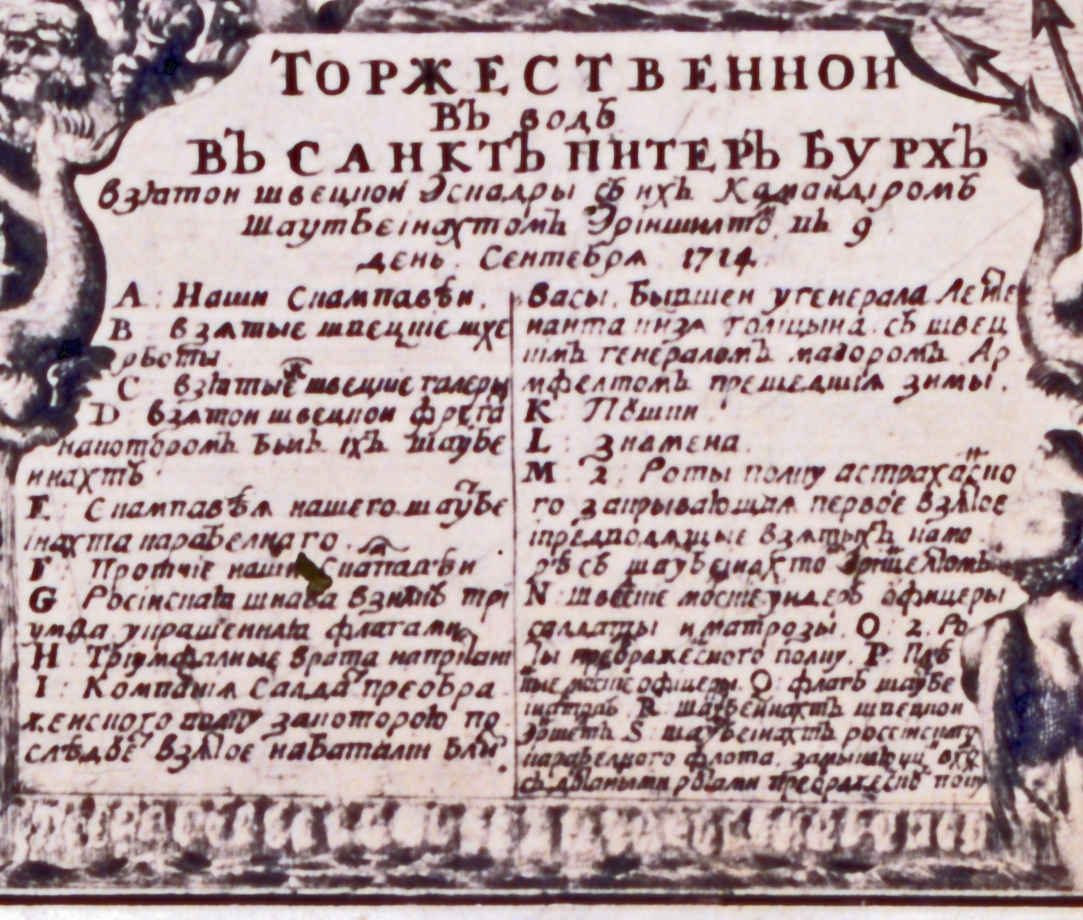 ТОРЖЕСТВЕННОИ
ВЪ водЪ
ВЪ САНКТЪ ПИТЕРЬ БУРХЪ
взятои швецкои Эскадры съ ихъ Камандіромъ
шаутъбеінахтомъ Эріншилто, ць 9
день Сентебря 1714
A : Наши Скампавѣи.
B взятые швецкие шхе
рботы.
C взятые швецкие галеры
D взятои швецкои фрега
накоторомъ былъ іхъ шаубе
инахтъ
E : Скампавѣя нашего шаубе
інахта карабелнаго.
F : Протчіе наши Скапавѣи
G : Росіиская шнава взнакъ три
умфа украшенная флагами
H : Тріумфалные врата
I : Компания Салда преобра
женского полку закоторою по
слѣдуе взятое набаталіи
васы, Бывшеи у генерала Леите
нанта кнзя голіцына съ швец
кімъ генераломъ маэоромъ Ар
мфелтомъ прешедшия зимы.
K : Пушки
L : Знамена.
M : 2. Роты полку астраханско
го закрывающая первое взятое
іпредводящие взятыхъ намо
рѣ съ
N : швецкие ундеръ офицеры
салдаты и матрозы. O : 2. Ро
ты преображеского полку. P : Плѣ
ные офицеры. Q : флагъ шаубе
інахта. R : шаубеинахтъ швецкои
Эршетъ S : шаубеінахтъ россиску
карабелного флота,
преображеско полку